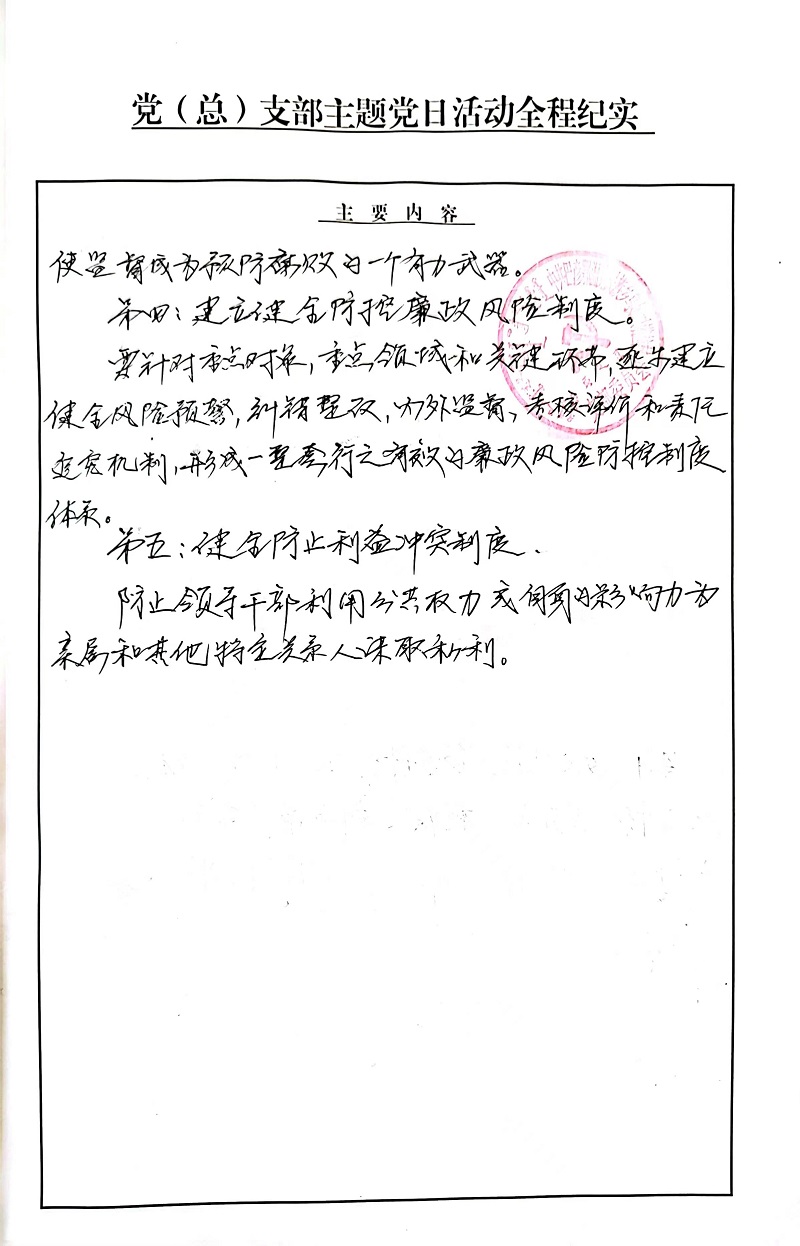 党（总）支部主题党日活动全程纪实
主要内容
使监督成为预防腐败的一个有力武器。
第四：建立健全防控廉政风险制度。
要针对重点对象，重点领域和关键环节，逐步建立
健全风险预警，纠错整改，内外监督，考核评价和责任
追究机制，形成一整套行之有效的廉政风险防控制度
体系。
第五：健全防止利益冲突制度．
防止领导干部利用公共权力或自身的影响力为
亲属和其他特定关系人谋取私利。